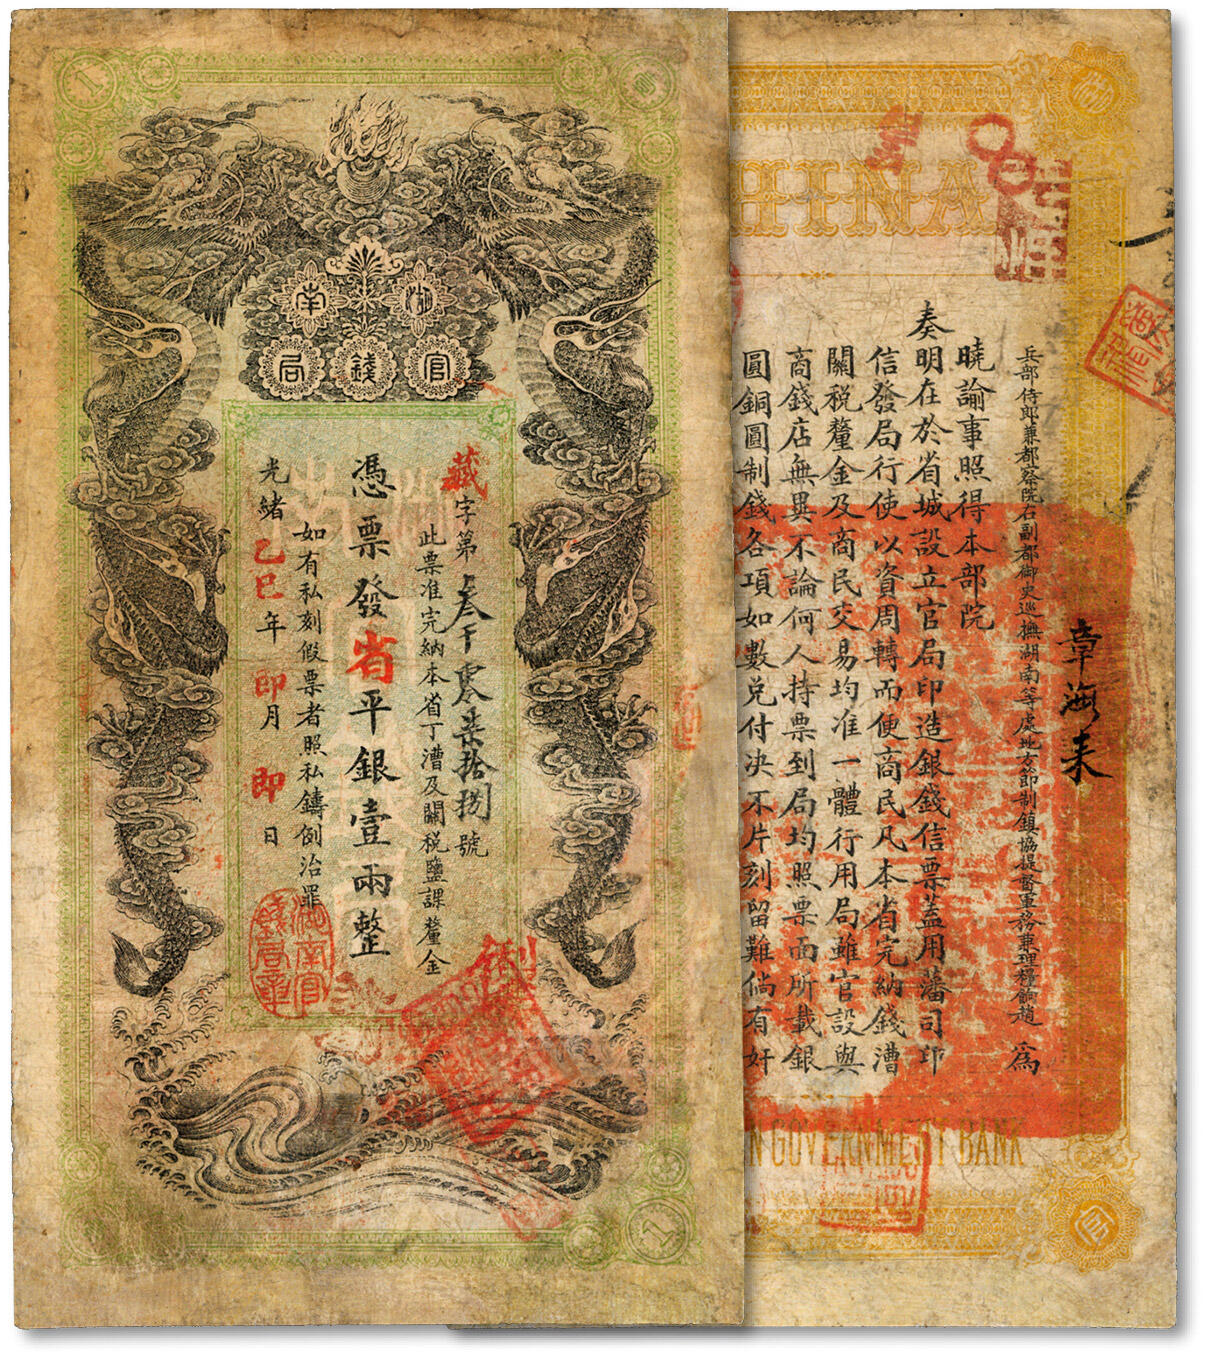 湖南
官錢局
藏字第叁千零柒拾捌號
此票准完納本省丁漕及關税鹽課釐金
憑票發省平銀壹兩整
如有私刻假票者照私鑄例治罪
光緒乙巳年 即月 即日
湖南官錢局章
1
1
HINA
章海来
兵部侍郎兼都察院右副都御史巡撫湖南等處地方節制鎮協提督軍務兼理糧餉趙 為
曉諭事照得本部院
奏明在於省城設立官局印造銀錢信票蓋用藩司印
信發局行使以資周轉而便商民凡本省完納錢漕
關税釐金及商民交易均准一體行用局雖官設與
商錢店無異不論何人持票到局均照票面所載銀
圓銅圓制錢各項如數兑付决不片刻留難倘有奸
N GOVERNMENT BANK